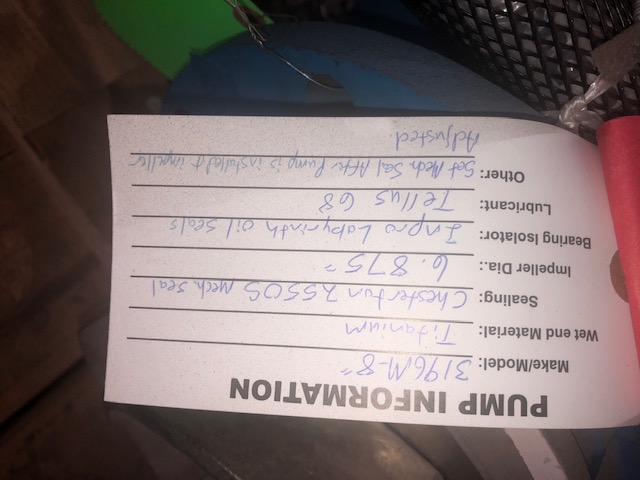 PUMP INFORMATION
Make/Model: 3196M-8"
Wet end Material: Titanium
Sealing: Chesterton 2550S Mech. Seal
Impeller Dia.: 6.875"
Bearing Isolator: Inpro Labyrinth oil seals
Lubricant: Tellus 68
Other: Set Mech. Seal After Pump is installed & impeller
Adjusted.